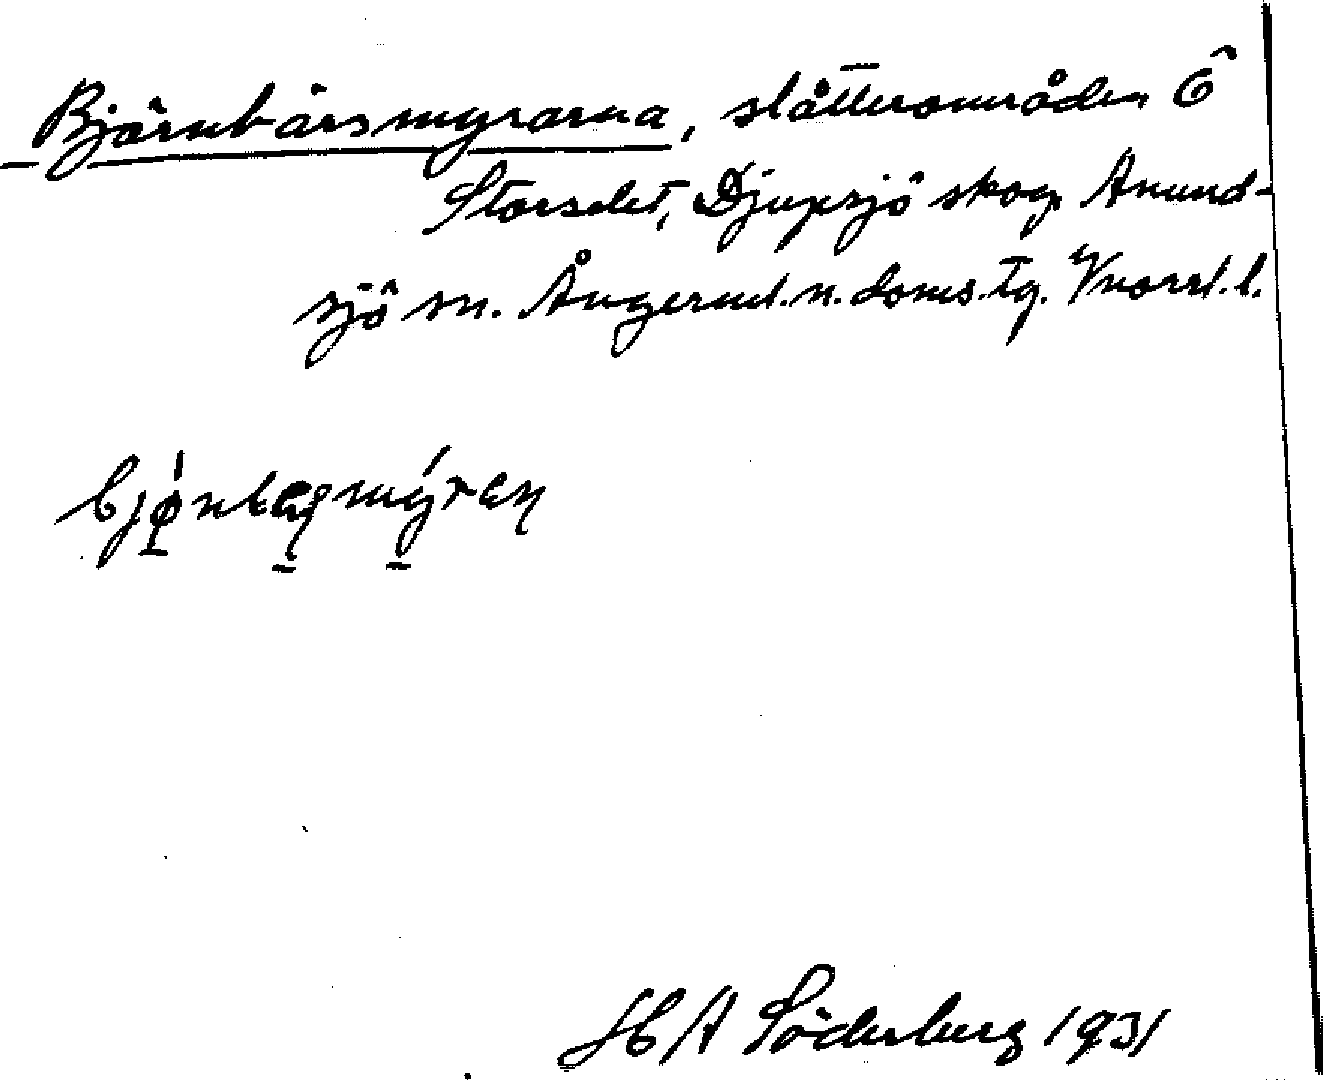 Björnbärsmyrarna, slåtterområden Ö
Storselet, Djupsjö skog, Anund-
sjö sn. Ångerml. n. doms. tg. Vnorrl. l.
H A Söderberg 1931